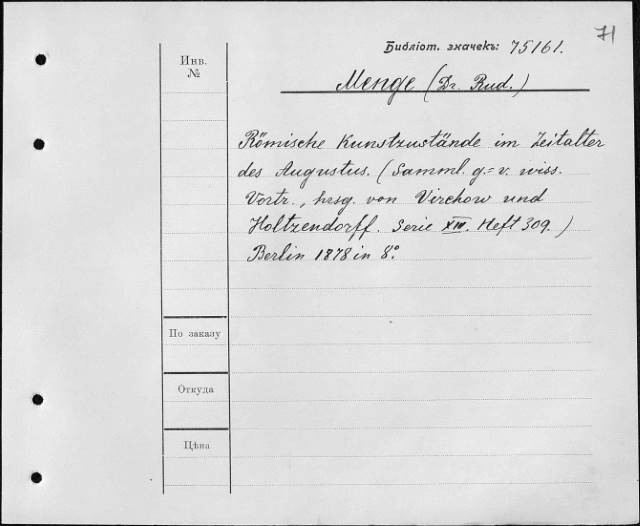 71
Библіот. значекъ: 75161.
Инв.
№
Menge (Dr. Rud.)
Römische Kunstzustände im Zeitalter
des Augustus. (Samml. g.-v. wiss.
Vortr., hrsg. von Virchow und
Holtzendorff. Serie XIII. Heft 309.)
Berlin 1878 in 8°.
По заказу
Откуда
Цѣна